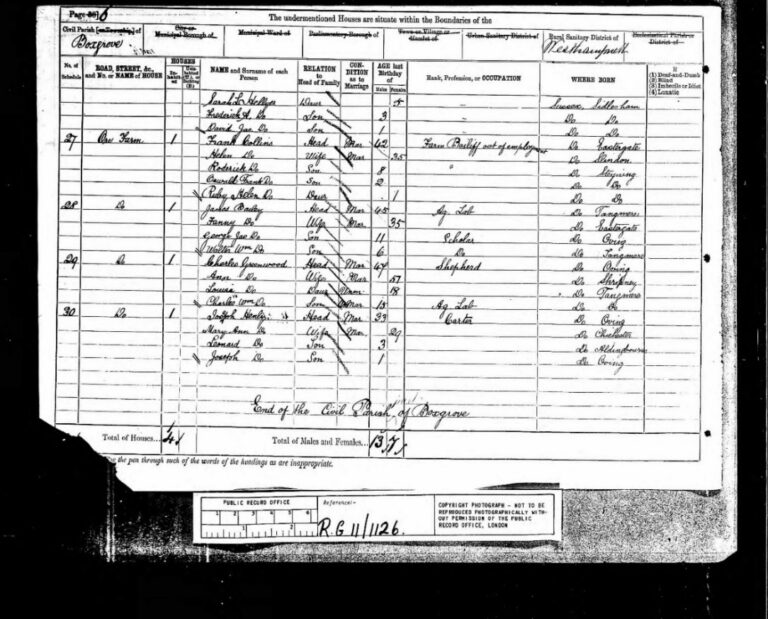 Page 6
The undermentioned Houses are situate within the Boundaries of the
Civil Parish [or Township] of City or Municipal Borough of Municipal Ward of Parliamentary Borough of Town or Village or Hamlet of Urban Sanitary District of Rural Sanitary District of Ecclesiastical Parish or District of
Boxgrove Westhampnett
No. of Schedule ROAD, STREET, &c., and No. or NAME of HOUSE HOUSES Inhabited Uninhabited (U.), or Building (B.) NAME and Surname of each Person RELATION to Head of Family CONDITION as to Marriage AGE last Birthday of Males Females Rank, Profession, or OCCUPATION WHERE BORN
(1) Deaf-and-Dumb
(2) Blind
(3) Imbecile or Idiot
(4) Lunatic
Sarah L Daur 5 Sussex Sidlesham
Frederick A Do Son 3 Do Do
David Jas Do Son 1 Do Do
27 Farm 1 Frank Collins Head Mar 42 Farm Bailiff out of employment Do Eastergate
Helen Do Wife Mar 35 Do Slindon
Roderick Do Son 8 " Do Steyning
Oswald Frank Do Son 2 Do Do
Ruby Helen Do Daur 1 Do Do
28 Do 1 James Bailey Head Mar 45 Ag. Lab Do Tangmere
Fanny Do Wife Mar 35 Do Eastergate
George Jas Do Son 11 Scholar Do Oving
Walter Wm Do Son 6 Do Do Tangmere
29 Do 1 Charles Greenwood Head Mar 47 Shepherd Do Oving
Ann Do Wife Mar 51 Do Shripney
Louisa Do Daur Unm 18 Do Tangmere
Charles Wm Do Son 15 Ag Lab Do Do
30 Do 1 Joseph Henley Head Mar 33 Carter Do Oving
Mary Ann Do Wife Mar 29 Do Chichester
Leonard Do Son 3 Do Aldingbourne
Joseph Do Son 1 Do Oving
End of the Civil Parish of Boxgrove
Total of Houses... 4 Total of Males and Females... 13 7
the pen through such of the words of the headings as are inappropriate.
PUBLIC RECORD OFFICE
1 2 3 4 5 6
1 2
Reference:-
R.G 11/1126.
COPYRIGHT PHOTOGRAPH - NOT TO BE
REPRODUCED PHOTOGRAPHICALLY WITH-
OUT PERMISSION OF THE PUBLIC
RECORD OFFICE, LONDON